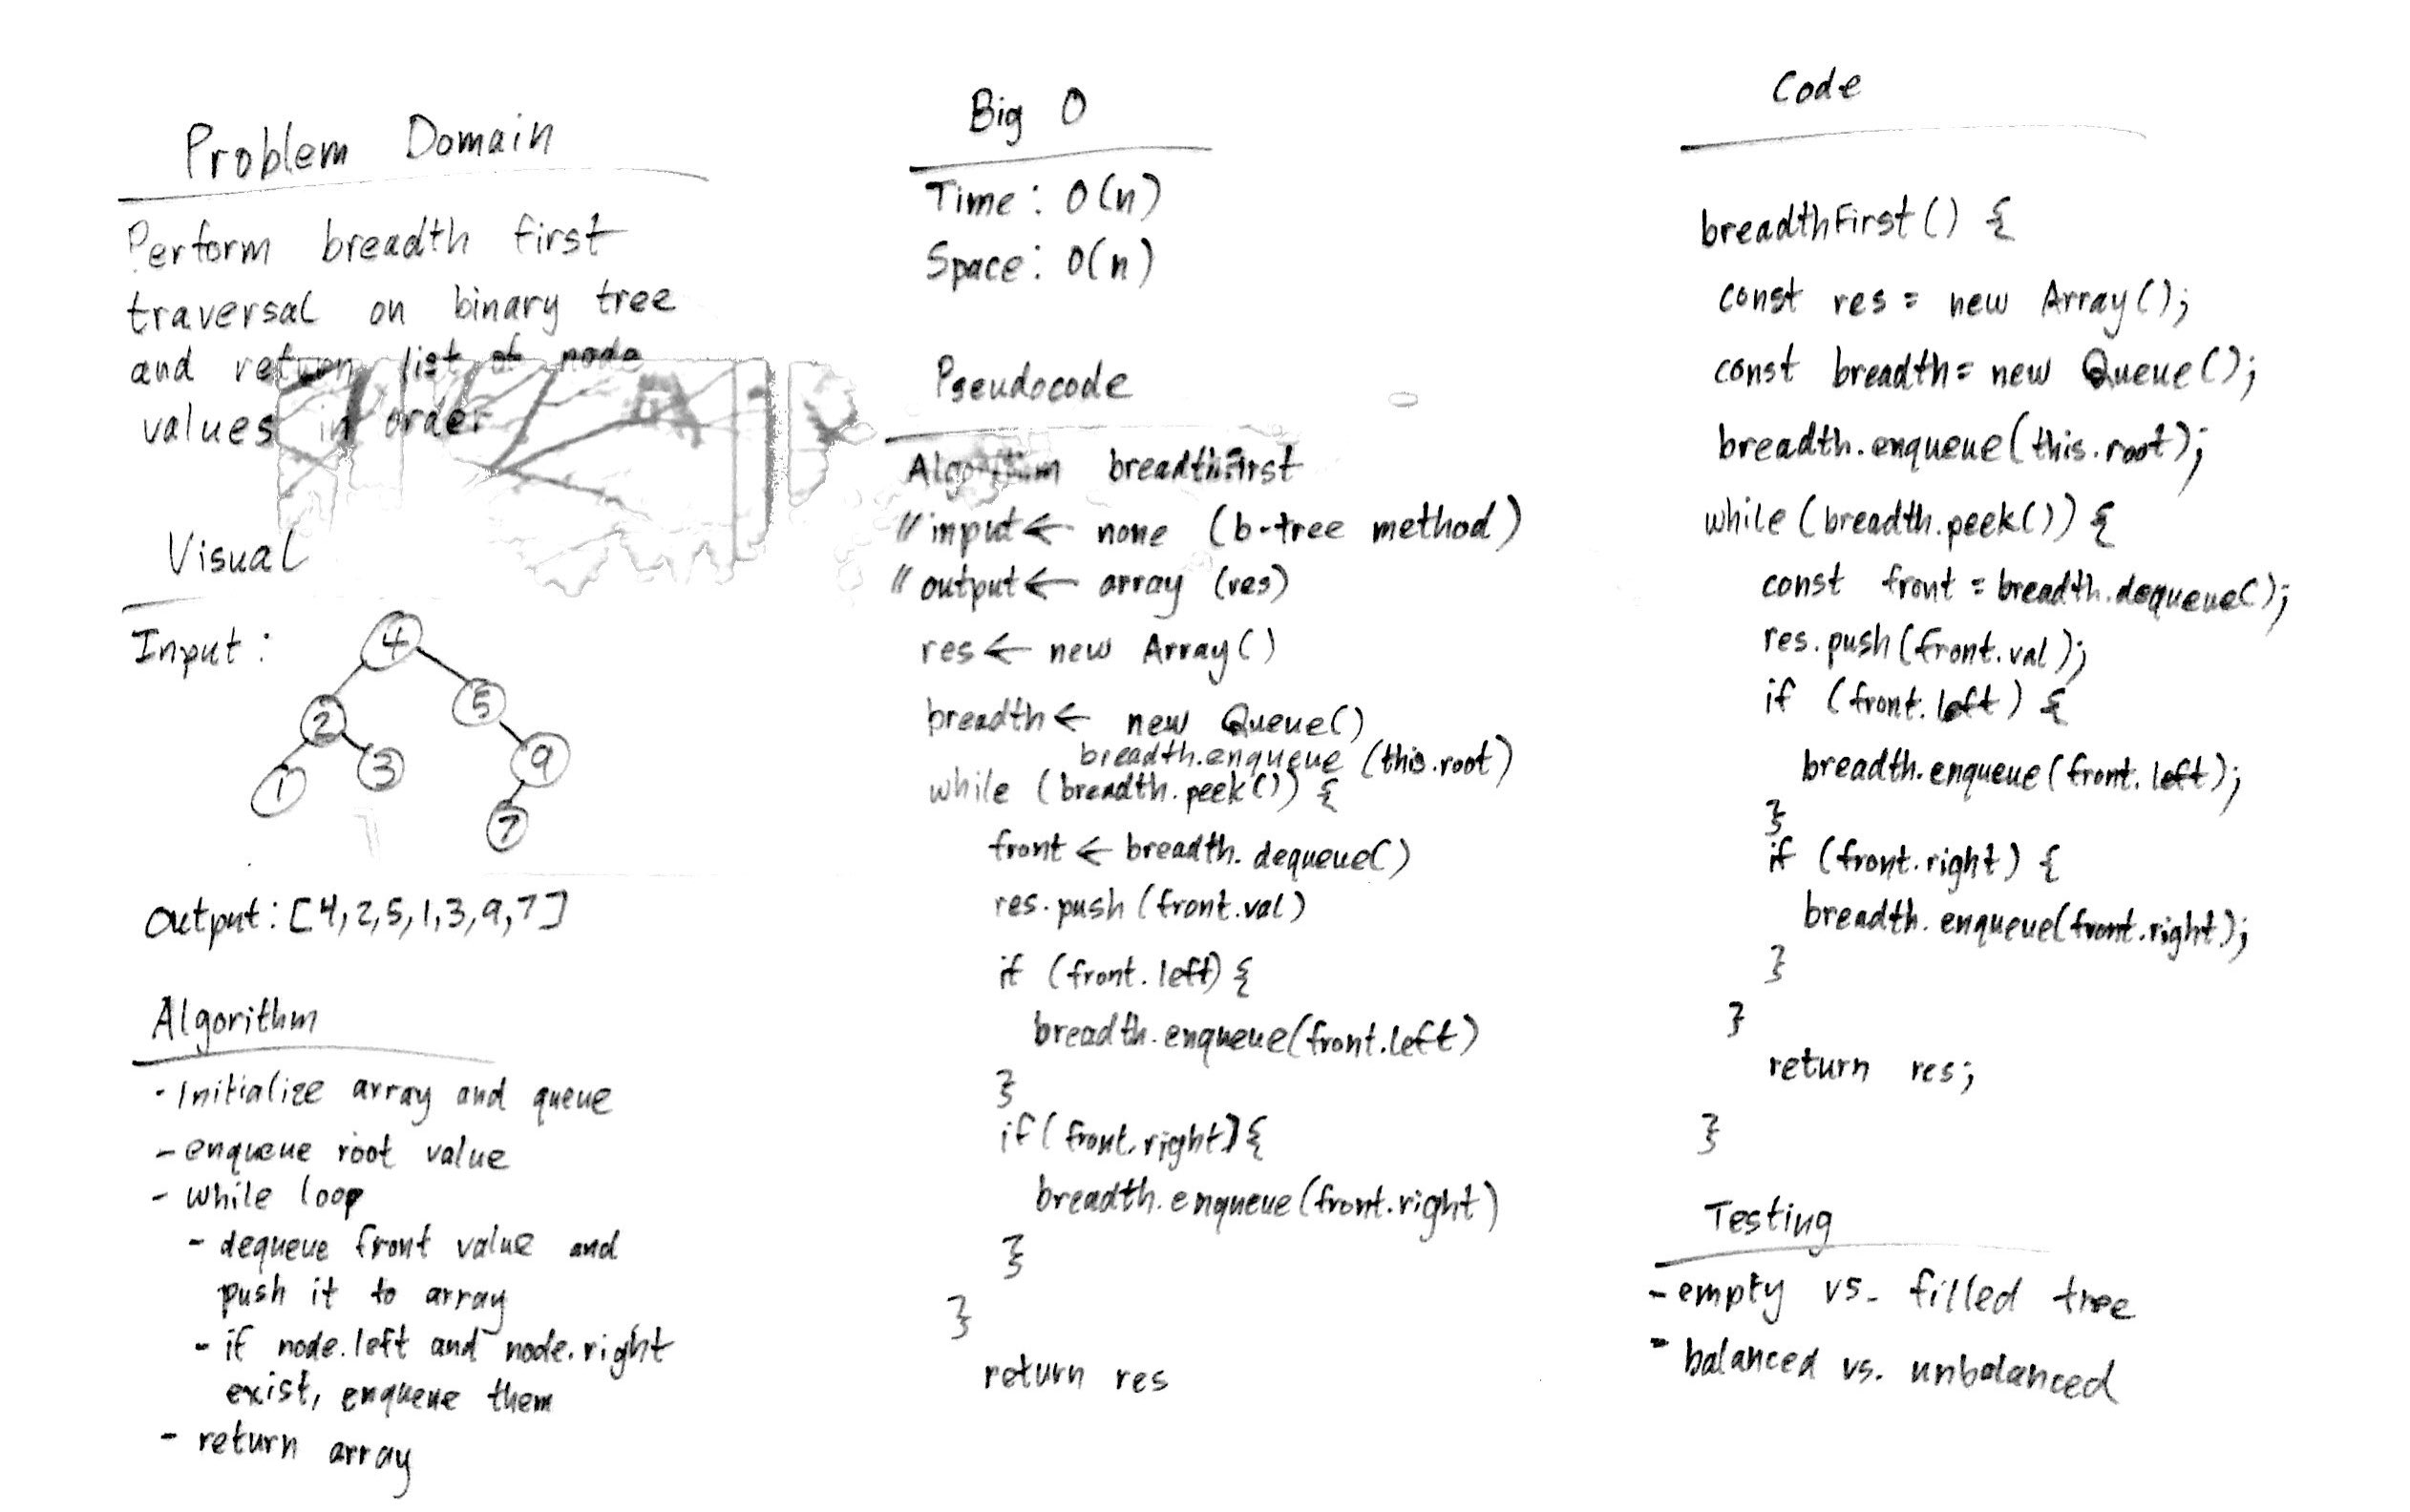 Problem Domain
Perform breadth first
traversal on binary tree
and return list of node
values in order
Visual
Input:
4
2
5
1
3
9
7
Output: [4,2,5,1,3,9,7]
Algorithm
- Initialize array and queue
- enqueue root value
- while loop
- dequeue front value and
push it to array
- if node.left and node.right
exist, enqueue them
- return array
Big O
Time: O(n)
Space: O(n)
Pseudocode
Algorithm breadthFirst
// input ← none (b-tree method)
// output ← array (res)
res ← new Array()
breadth ← new Queue()
breadth.enqueue (this.root)
while (breadth.peek()) {
front ← breadth.dequeue()
res.push (front.val)
if (front.left) {
breadth.enqueue(front.left)
}
if (front.right) {
breadth.enqueue (front.right)
}
}
return res
Code
breadthFirst() {
const res = new Array();
const breadth = new Queue();
breadth.enqueue(this.root);
while (breadth.peek()) {
const front = breadth.dequeue();
res.push(front.val);
if (front.left) {
breadth.enqueue(front.left);
}
if (front.right) {
breadth.enqueue(front.right);
}
}
return res;
}
Testing
- empty vs. filled tree
- balanced vs. unbalanced